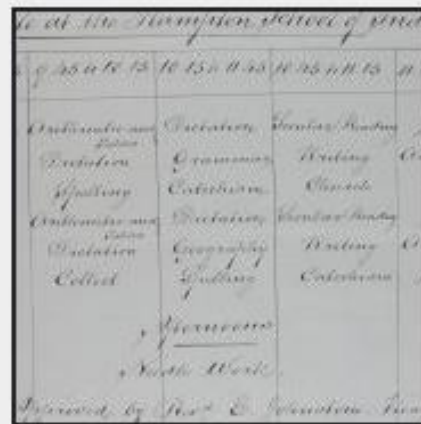 at the Hampton School of Ind
9 45 to 10 15 10 15 to 11 45 10 45 to 11 15 11
Arithmetic and Tables Dictation Secular Reading
Dictation Grammar Writing
Spelling Catechism
Arithmetic and Tables Dictation Secular Reading
Dictation Geography Writing
Collect Spelling Catechism
Afternoons
Needle Work.
Approved by Revd E Johnstone